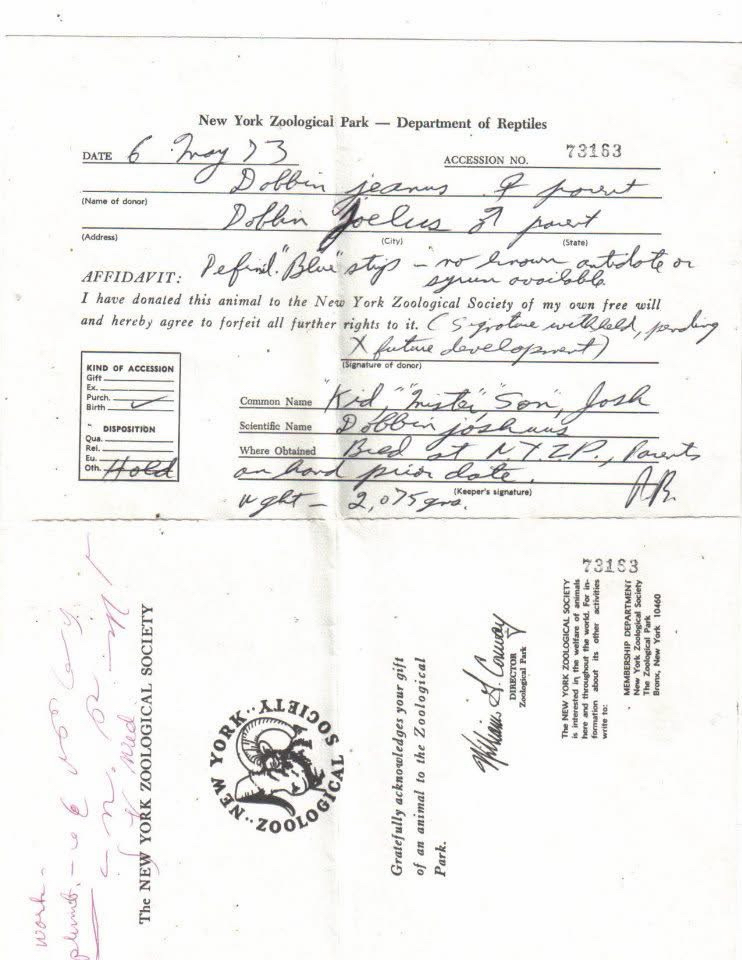 New York Zoological Park — Department of Reptiles
DATE 6 May 73
ACCESSION NO. 73163
Dobbin jeanus ♀ parent
(Name of donor)
Dobbin joelus ♂ parent
(Address) (City) (State)
"Blue" strip – no known antidote or
AFFIDAVIT: available
I have donated this animal to the New York Zoological Society of my own free will
and hereby agree to forfeit all further rights to it. (Signature withheld, pending
X future development)
(Signature of donor)
KIND OF ACCESSION
Gift
Ex.
Purch.
Birth ✓
DISPOSITION
Qua.
Rel.
Eu.
Oth. Hold
Common Name "Kid," "Mister," "Son", Josh
Scientific Name Dobbin joshuus
Where Obtained Bred at N.Y.Z.P., Parents
on hand prior date.
(Keeper's signature)
wght – 2,075 grs.
work –
The NEW YORK ZOOLOGICAL SOCIETY
NEW YORK ZOOLOGICAL SOCIETY
Gratefully acknowledges your gift
of an animal to the Zoological
Park.
William G. Conway
DIRECTOR
Zoological Park
73163
The NEW YORK ZOOLOGICAL SOCIETY
is interested in the welfare of animals
here and throughout the world. For in-
formation about its other activities
write to:
MEMBERSHIP DEPARTMENT
New York Zoological Society
The Zoological Park
Bronx, New York 10460